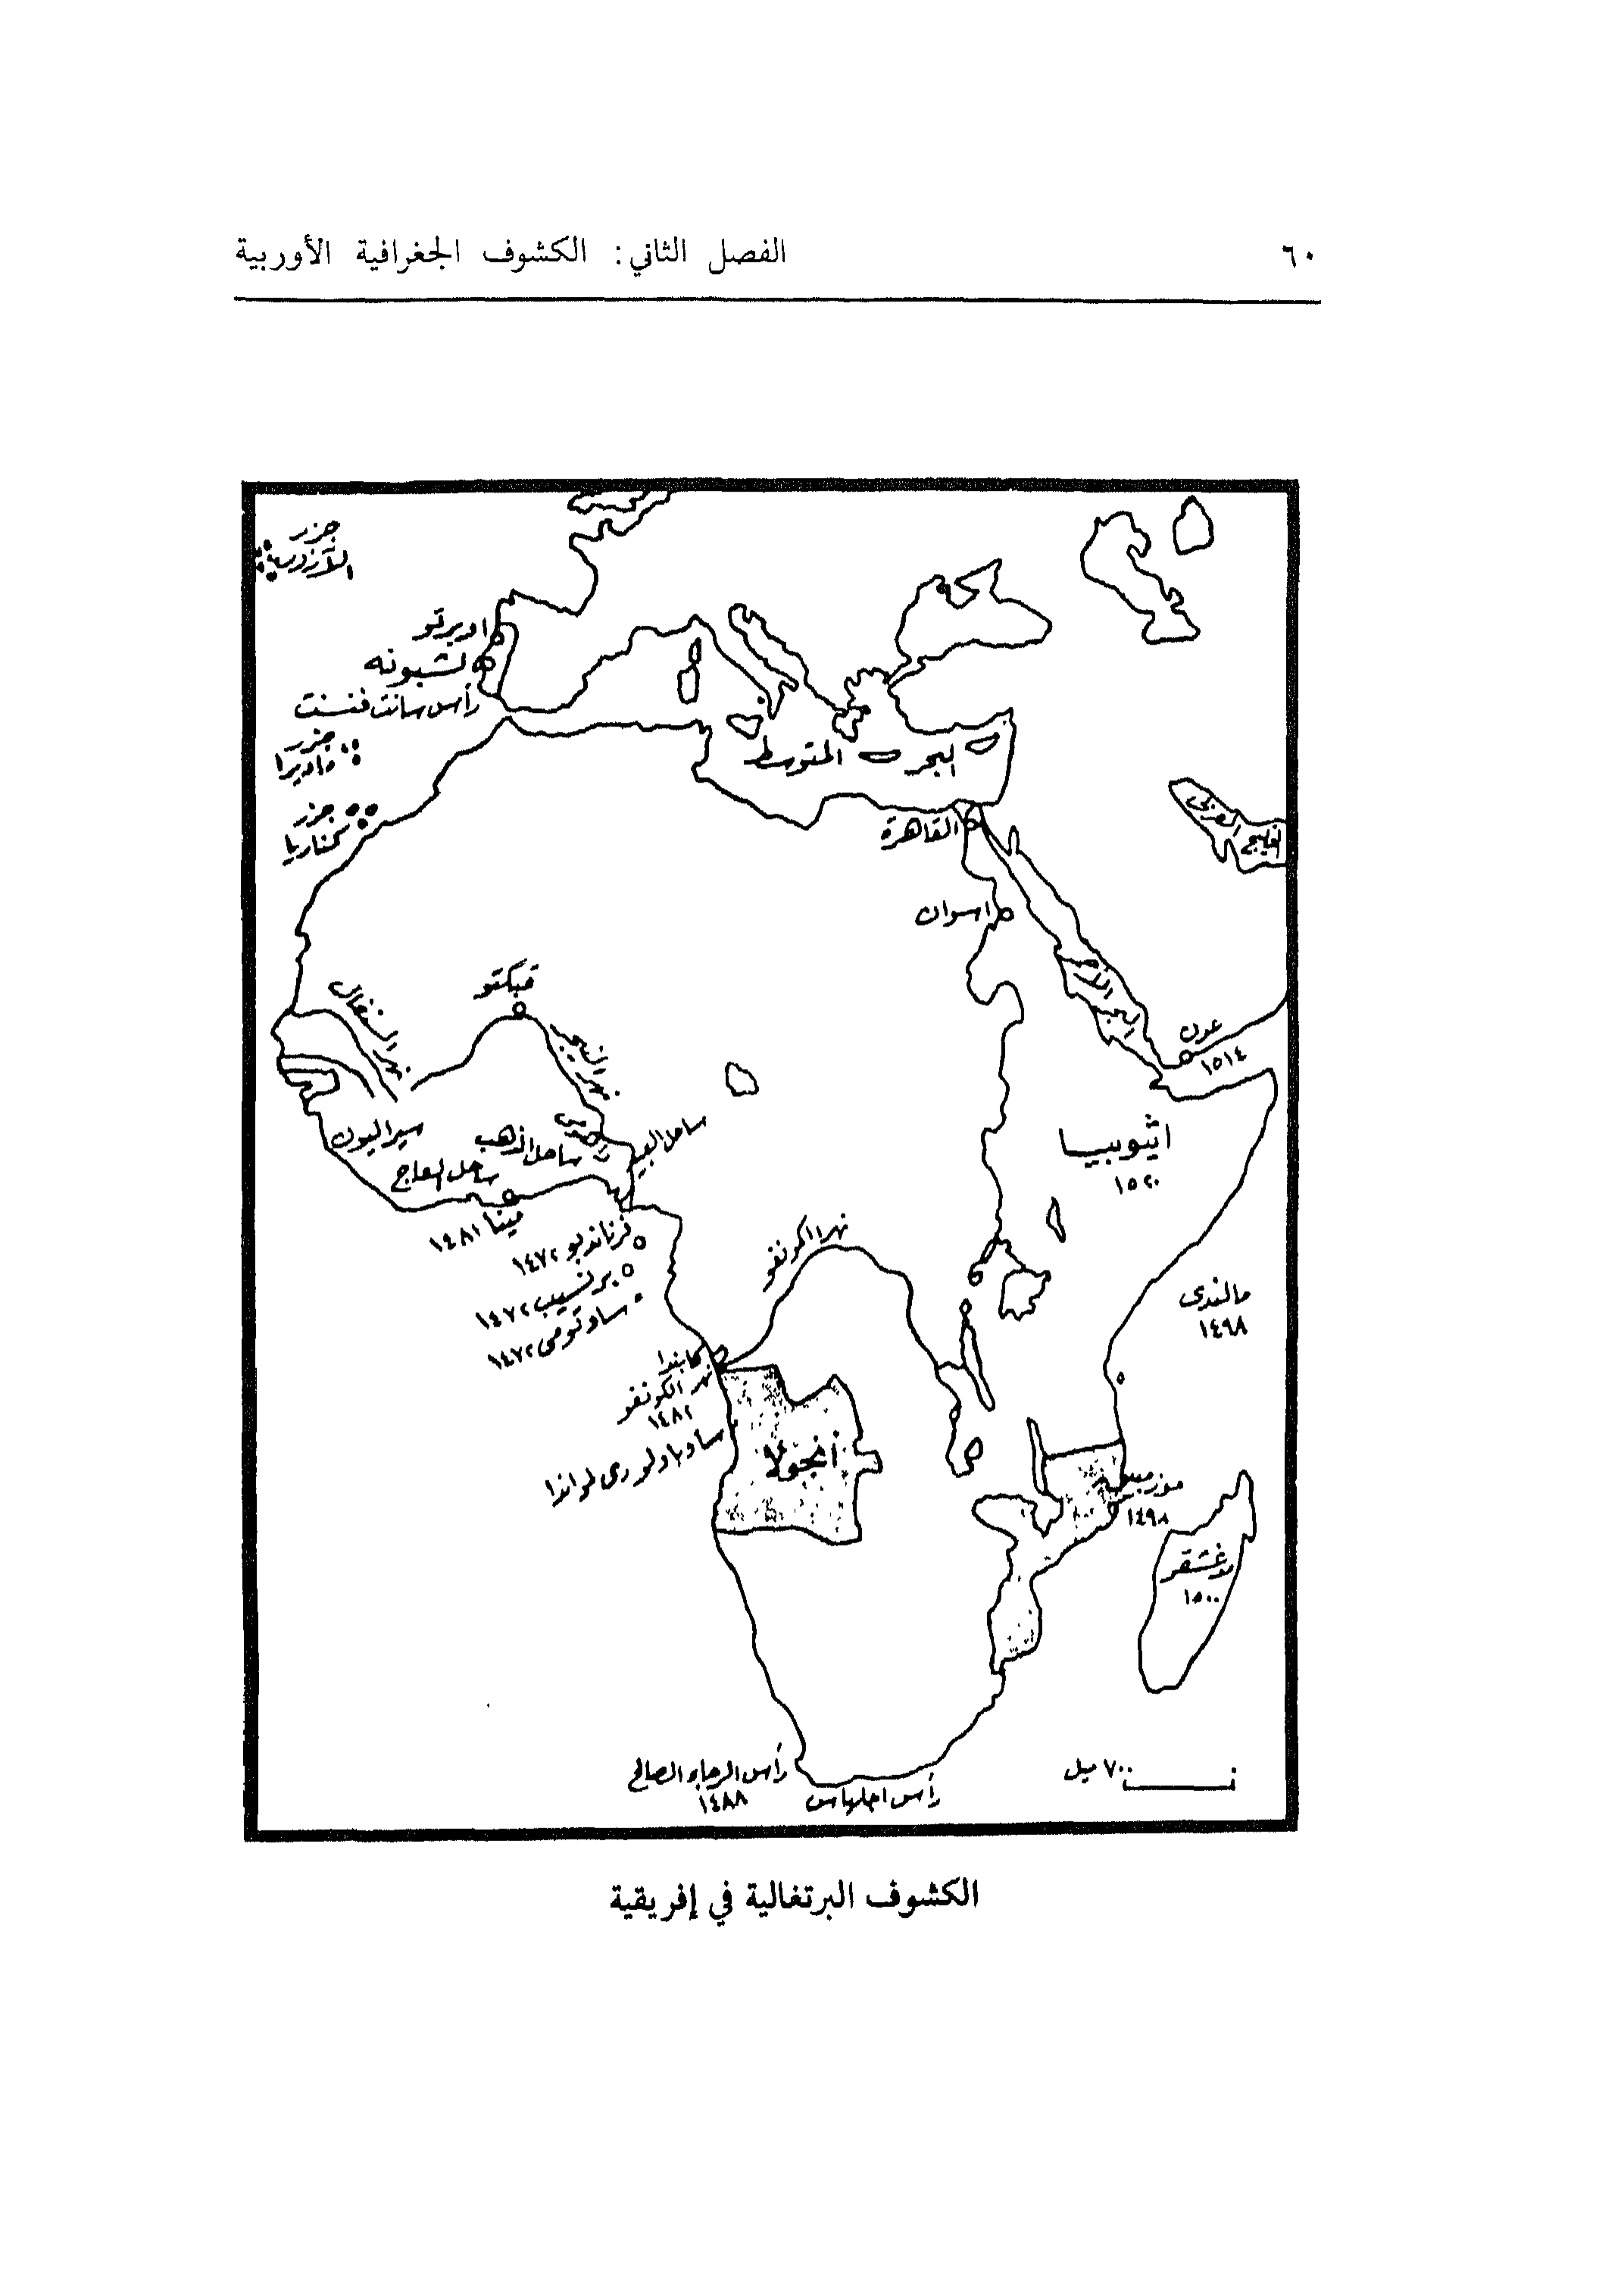 ٦٠
الفصل الثاني: الكشوف الجغرافية الأوربية
جزر
اوبرتو
لشبونه
رأس سانت فنسنت
جزر
ماديرا
جزر
كناريا
البحر المتوسط
القاهرة
اسوان
الخليج العربي
عدن
١٥١٤
تمبكتو
نهر السنغال
نهر النيجر
سيراليون
ساحل الذهب
ساحل العاج
ساحل العبيد
مينا ١٤٨١
فرناندبو ١٤٧٢
برنسيب ١٤٧٢
ساوتومى ١٤٧٢
اثيوبيا
١٥٢٠
نهر الكونغو
مالندى
١٤٩٨
كابندا
نهر الكونغو
١٤٨٢
ساوباولو دى لواندا
أنجولا
موزمبيق
١٤٩٨
مدغشقر
١٥٠٠
٧٠٠ ميل
رأس الرجاء الصالح
١٤٨٨
رأس اجلهاس
الكشوف البرتغالية في إفريقية